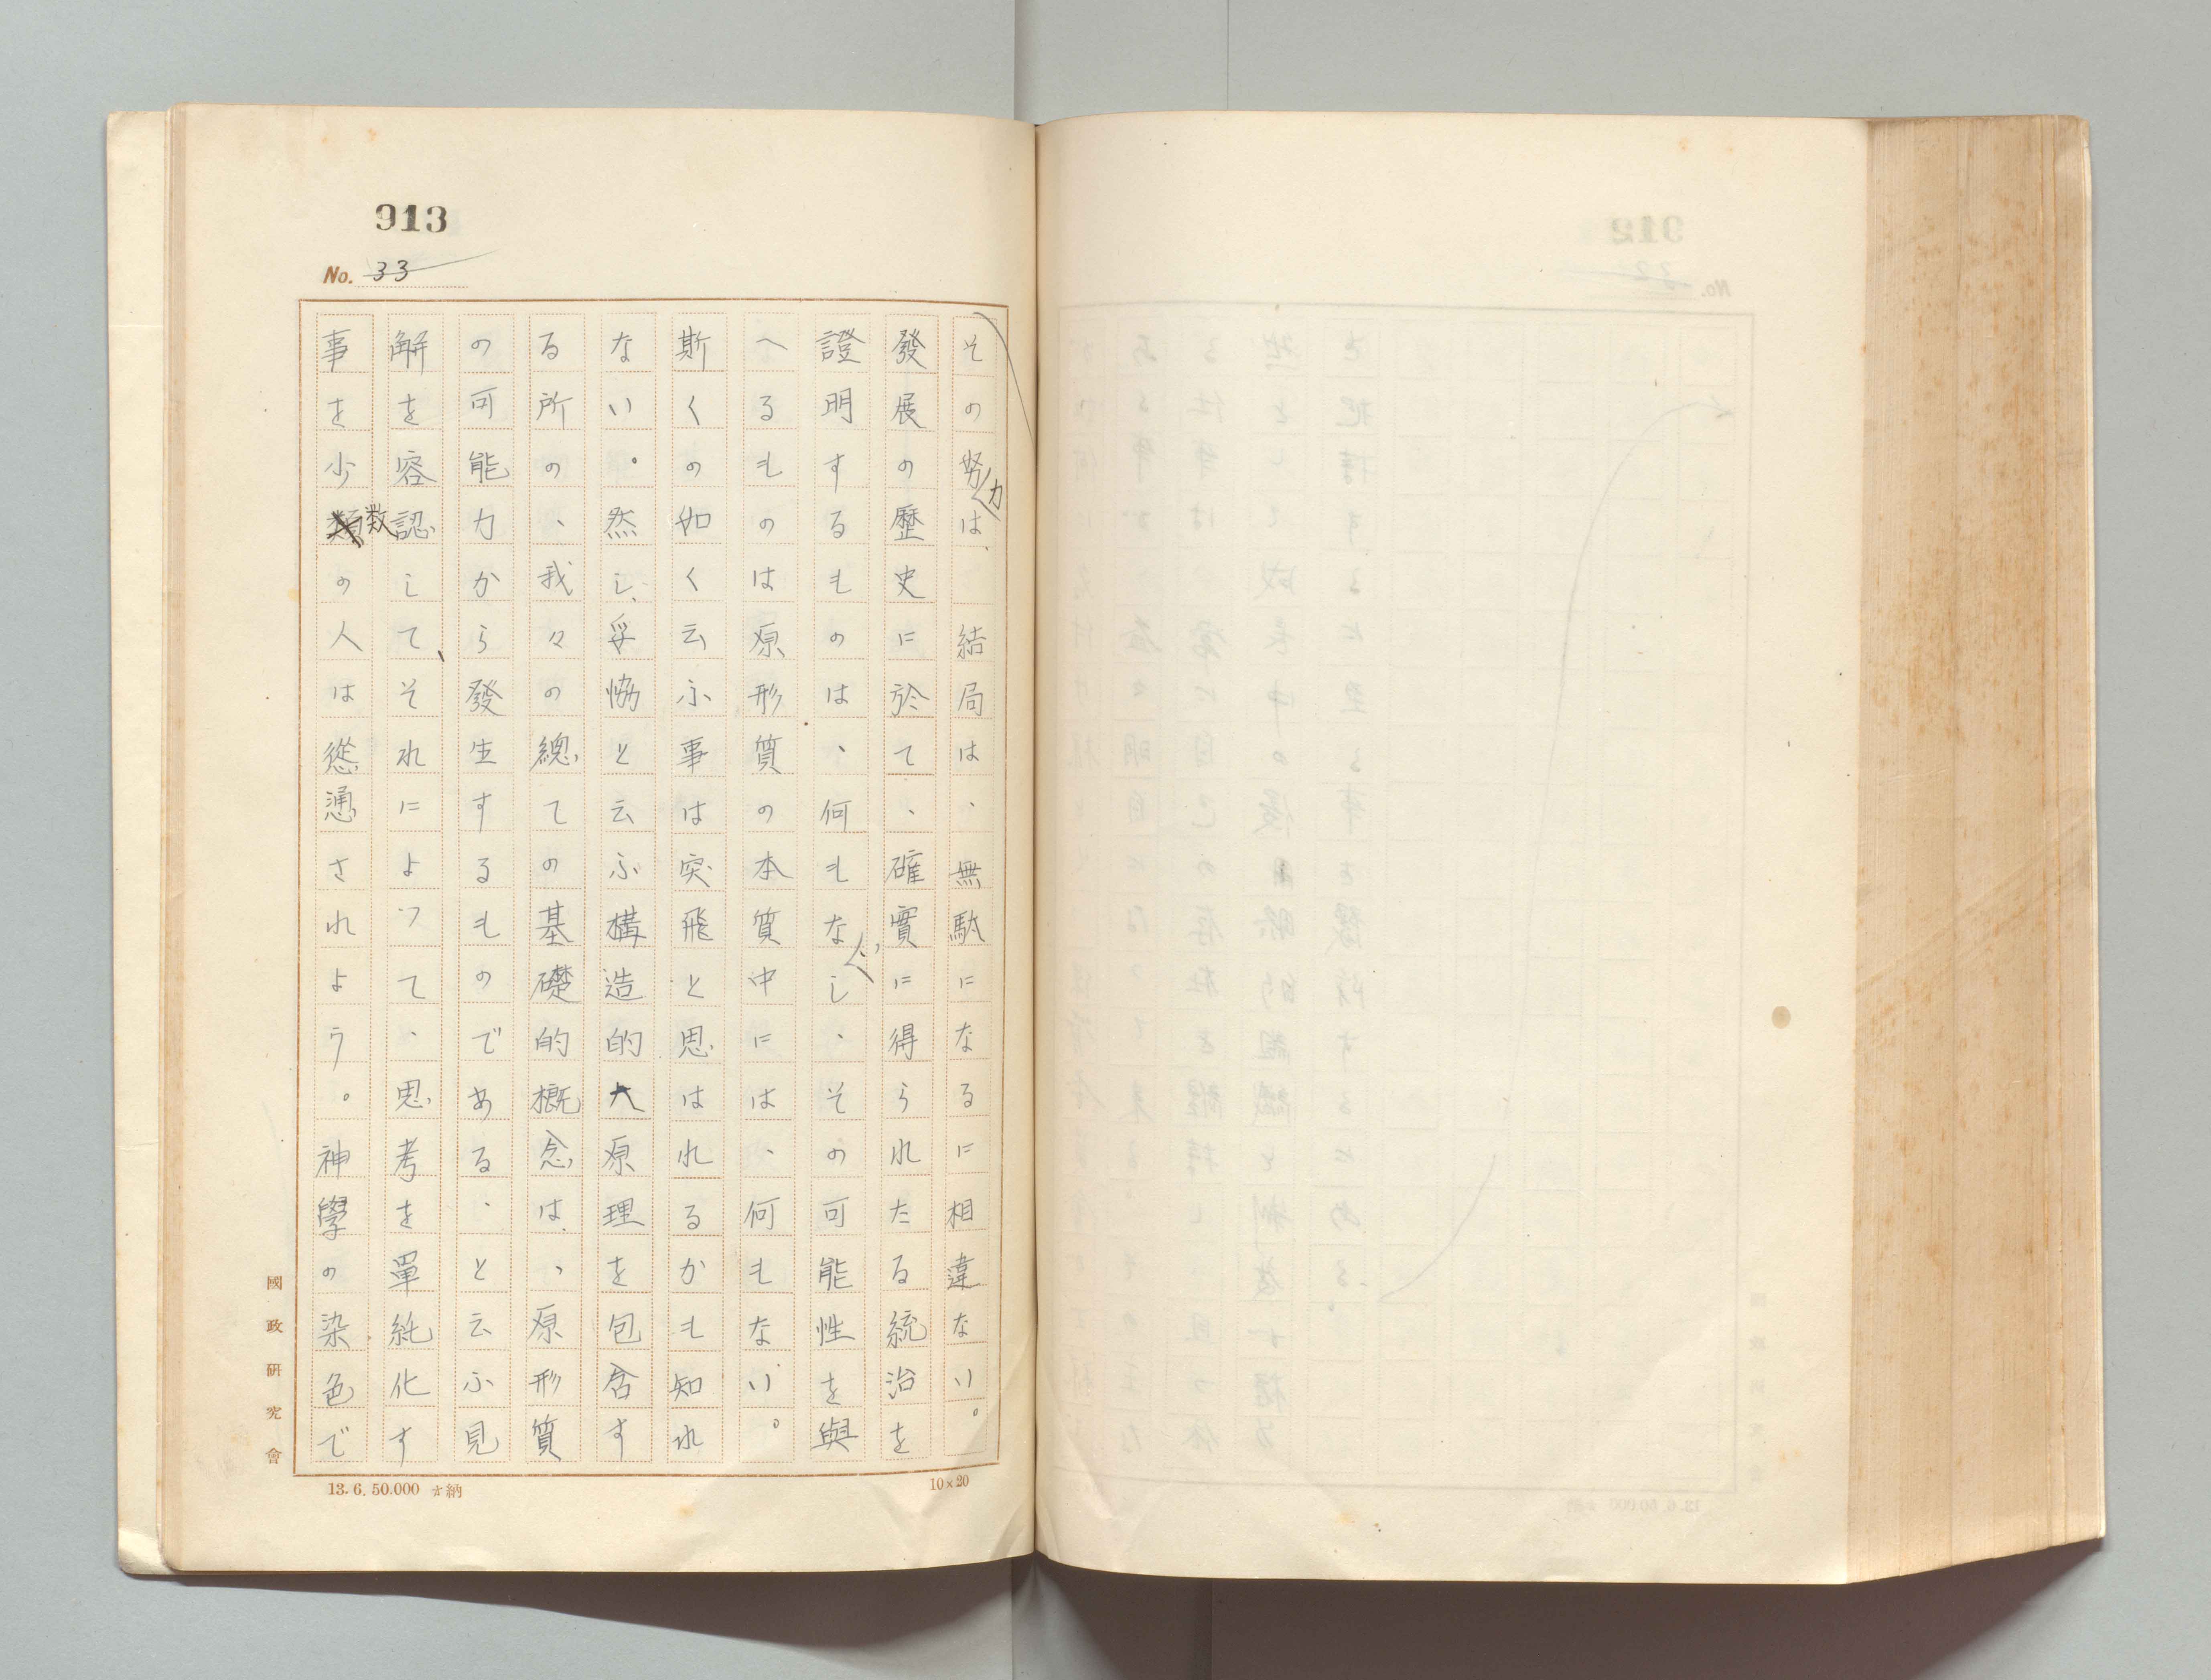 913
No. 33
その努力は、結局は、無駄になるに相違ない。
發展の歷史に於て、確實に得られたる統治を
證明するものは、何もなく、その可能性を與
へるものは原形質の本質中には、何もない。
斯くの如く云ふ事は突飛と思はれるかも知れ
ない。然し、妥協と云ふ構造的大原理を包含す
る所の、我々の總ての基礎的概念は、、原形質
の可能力から發生するものである、と云ふ見
解を容認して、それによつて、思考を單純化す
事を少数の人は慫慂されよう。神學の染色で
國政研究會
13.6.50.000 納
10×20